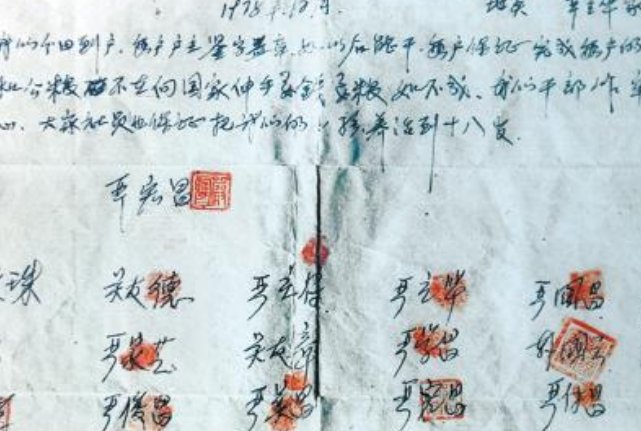 1978.12. 地点 严立华家
我们分田到户,每户户主签字盖章,如以后能干,每户保证完成每户的
和公粮不在向国家伸手要钱要粮如不成,我们干部作
心,大家社员也保证把我们的小孩养活到十八岁.
严宏昌
珠 关友德 严立符 严立华 严国昌
严家芝 关友章 严学昌 韩国云
严俊昌 严美昌 严宏昌 严付昌